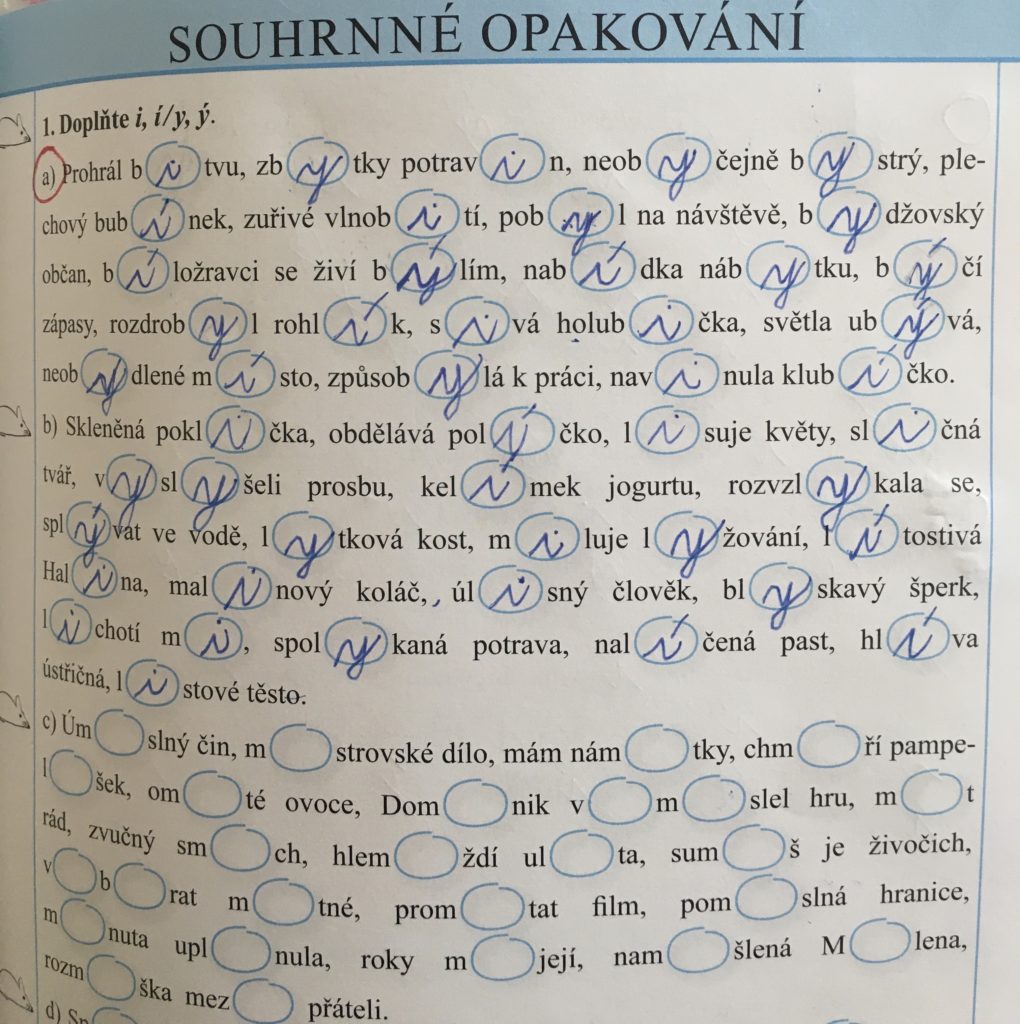 SOUHRNNÉ OPAKOVÁNÍ
1. Doplňte i, í/y, ý.
a) Prohrál bitvu, zbytky potravin, neobyčejně bystrý, ple-
chový bubínek, zuřivé vlnobití, pobyl na návštěvě, bydžovský
občan, býložravci se živí býlím, nabídka nábytku, býčí
zápasy, rozdrobyl rohlík, sivá holubička, světla ubývá,
neobydlené místo, způsobylá k práci, navinula klubíčko.
b) Skleněná poklička, obdělává políčko, lisuje květy, sličná
tvář, vyslyšeli prosbu, kelímek jogurtu, rozvzlykala se,
splývat ve vodě, lytková kost, miluje lyžování, lítostivá
Halina, malinový koláč, úlisný člověk, blyskavý šperk,
lichotí mi, spolykaná potrava, nalíčená past, hlíva
ústřičná, listové těsto.
c) Úm slný čin, m strovské dílo, mám nám tky, chm ří pampe-
l šek, om té ovoce, Dom nik v m slel hru, m t
rád, zvučný sm ch, hlem ždí ul ta, sum š je živočich,
v b rat m tné, prom tat film, pom slná hranice,
m nuta upl nula, roky m její, nam šlená M lena,
rozm ška mez přáteli.
d) Sp